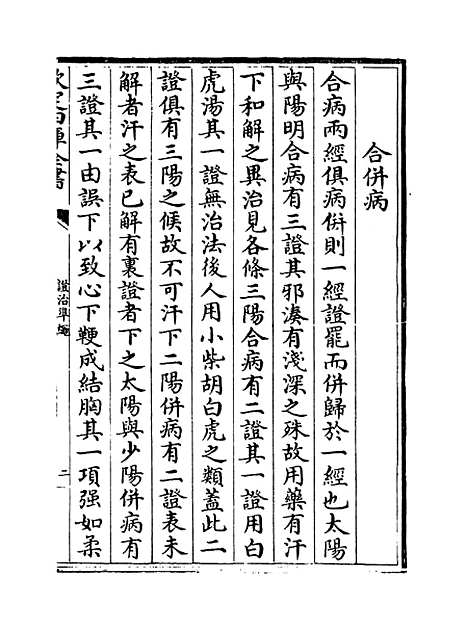 合併病
合病兩經俱病併則一經證罷而併歸於一經也太陽
與陽明合病有三證其邪湊有淺深之殊故用藥有汗
下和解之異治見各條三陽合病有二證其一證用白
虎湯其一證無治法後人用小柴胡白虎之類蓋此二
證俱有三陽之候故不可汗下二陽併病有二證表未
解者汗之表已解有裏證者下之太陽與少陽併病有
三證其一由誤下以致心下鞕成結胸其一項强如柔
欽定四庫全書
證治準繩